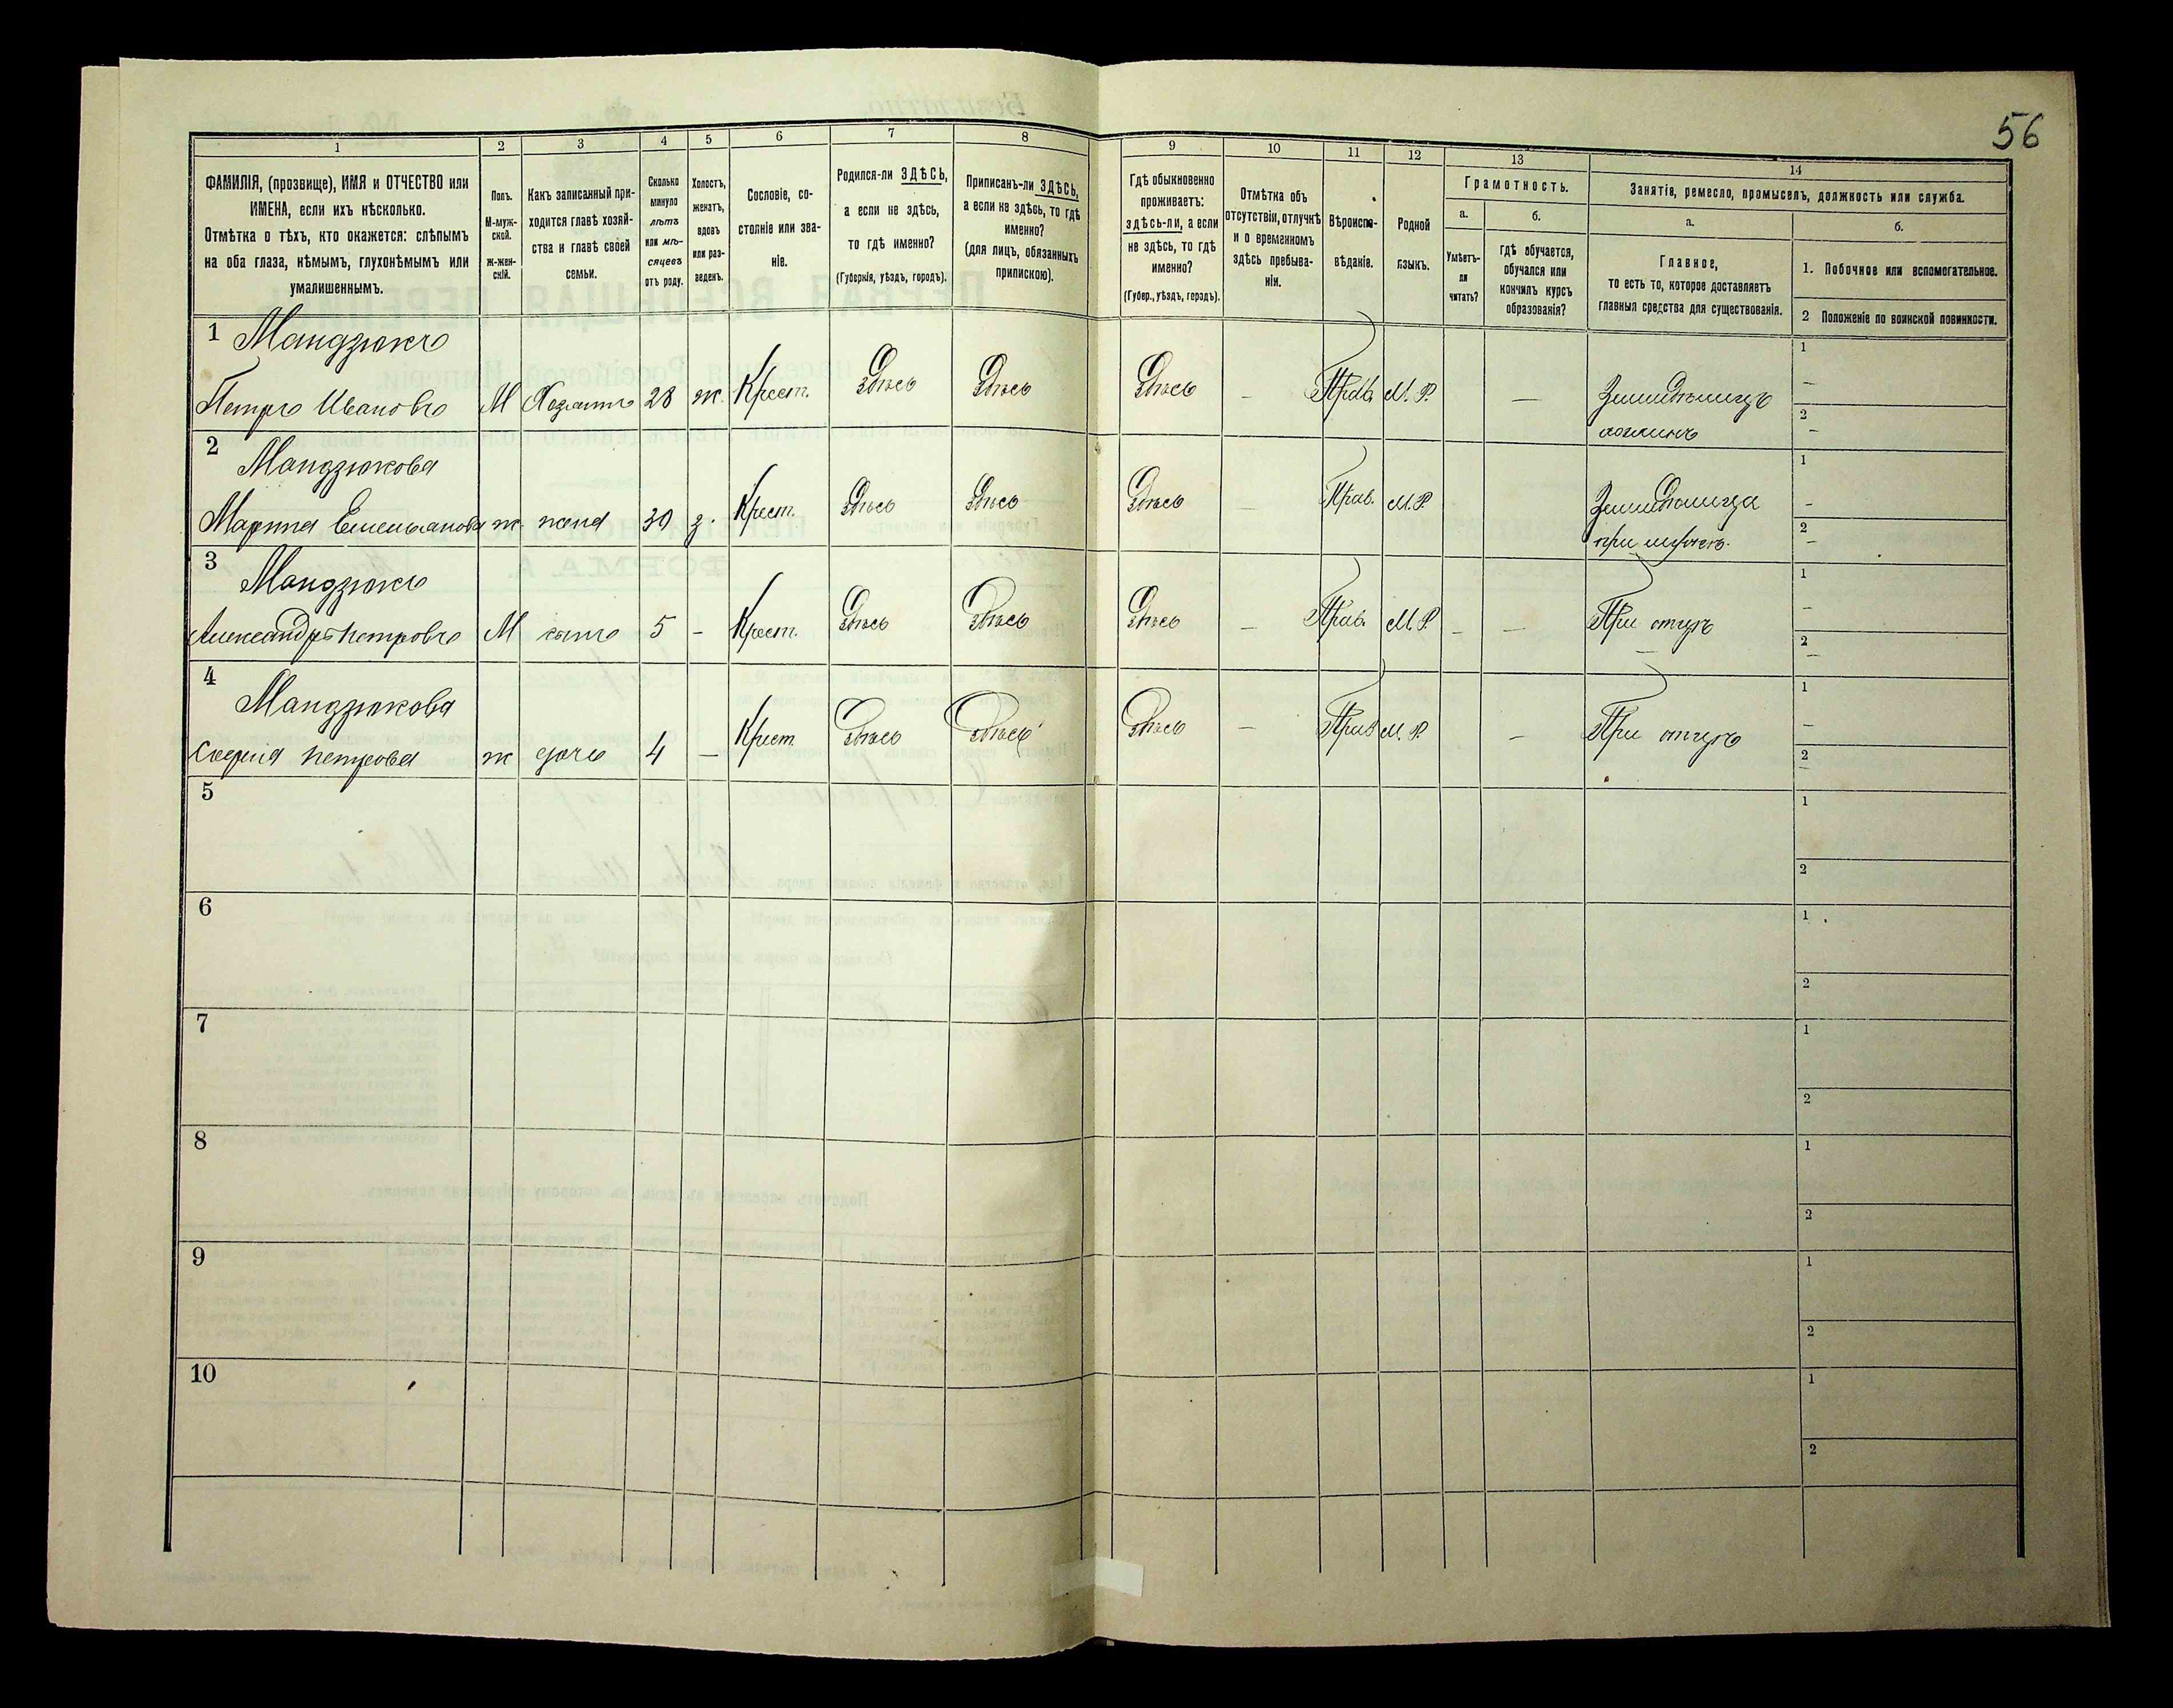 56
1
2
3
4
5
6
7
8
9
10
11
12
13
14
ФАМИЛІЯ, (прозвище), ИМЯ и ОТЧЕСТВО или
ИМЕНА, если ихъ нѣсколько.
Отмѣтка о тѣхъ, кто окажется: слѣпымъ
на оба глаза, нѣмымъ, глухонѣмымъ или
умалишеннымъ.
Полъ.
М-муж-
ской.
ж-жен-
скій.
Какъ записанный при-
ходится главѣ хозяй-
ства и главѣ своей
семьи.
Сколько
минуло
лѣтъ
или мѣ-
сяцевъ
отъ роду.
Холостъ,
женатъ,
вдовъ
или раз-
веденъ.
Сословіе, со-
стояніе или зва-
ніе.
Родился-ли ЗДѢСЬ,
а если не здѣсь,
то гдѣ именно?
(Губернія, уѣздъ, городъ).
Приписанъ-ли ЗДѢСЬ,
а если не здѣсь, то гдѣ
именно?
(для лицъ, обязанныхъ
припискою).
Гдѣ обыкновенно
проживаетъ:
здѣсь-ли, а если
не здѣсь, то гдѣ
именно?
(Губер., уѣздъ, городъ).
Отмѣтка объ
отсутствіи, отлучкѣ
и о временномъ
здѣсь пребыва-
ніи.
Вѣроиспо-
вѣданіе.
Родной
языкъ.
Грамотность.
а.
б.
Умѣетъ-
ли
читать?
гдѣ обучается,
обучался или
кончилъ курсъ
образованія?
Занятія, ремесло, промыселъ, должность или служба.
а.
б.
Главное,
то есть то, которое доставляетъ
главныя средства для существованія.
1. Побочное или вспомогательное.
2 Положеніе по воинской повинности.
1 Мандзюкъ
Петръ Ивановъ М Хозяинъ 28 ж. Крест. Здѣсь Здѣсь Здѣсь – Прав. М. Р. – Земледѣлецъ
хозяинъ
1 –
2 –
2 Мандзюкова
Марина Емельянова ж. жена 30 з. Крест. Здѣсь Здѣсь Здѣсь – Прав. М. Р. Земледѣлица
при мужѣ.
1 –
2 –
3 Мандзюкъ
Александръ Петровъ М сынъ 5 – Крест. Здѣсь Здѣсь Здѣсь – Прав. М. Р. – – При отцѣ
1 –
2 –
4 Мандзюкова
София Петрова ж дочь 4 – Крест. Здѣсь Здѣсь Здѣсь – Прав М. Р. – При отцѣ
1 –
2 –
5
1
2
6
1
2
7
1
2
8
1
2
9
1
2
10
1
2